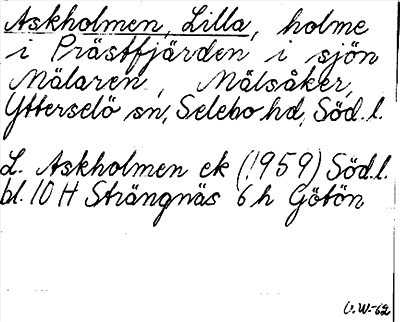 Askholmen, Lilla, holme
i Prästfjärden i sjön
Mälaren, Mälsåker,
Ytterselö sn, Selebo hd, Söd. l.
L. Askholmen ek (1959) Söd.l.
bl. 10 H Strängnäs 6 h Götön
O.W.-62